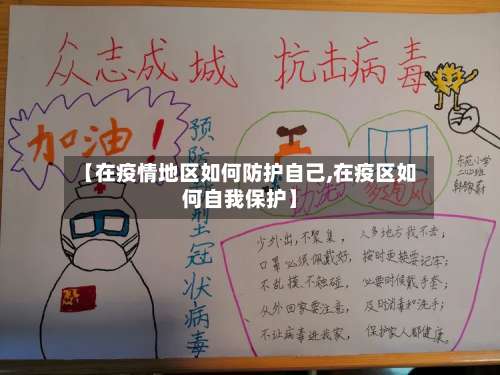 众志成城 抗击病毒
加油！
预防新型冠状病毒
勤洗手
多通风
东苑小学
【在疫情地区如何防护自己,在疫区如
何自我保护】
少外出,不聚集， 人多地方我不去；
口罩必须佩戴好， 按时更换要记牢；
不乱摸、不触碰， 必要时候戴手套；
从外回家要注意， 及时消毒和洗手；
不让病毒进我家， 保护家人都健康。